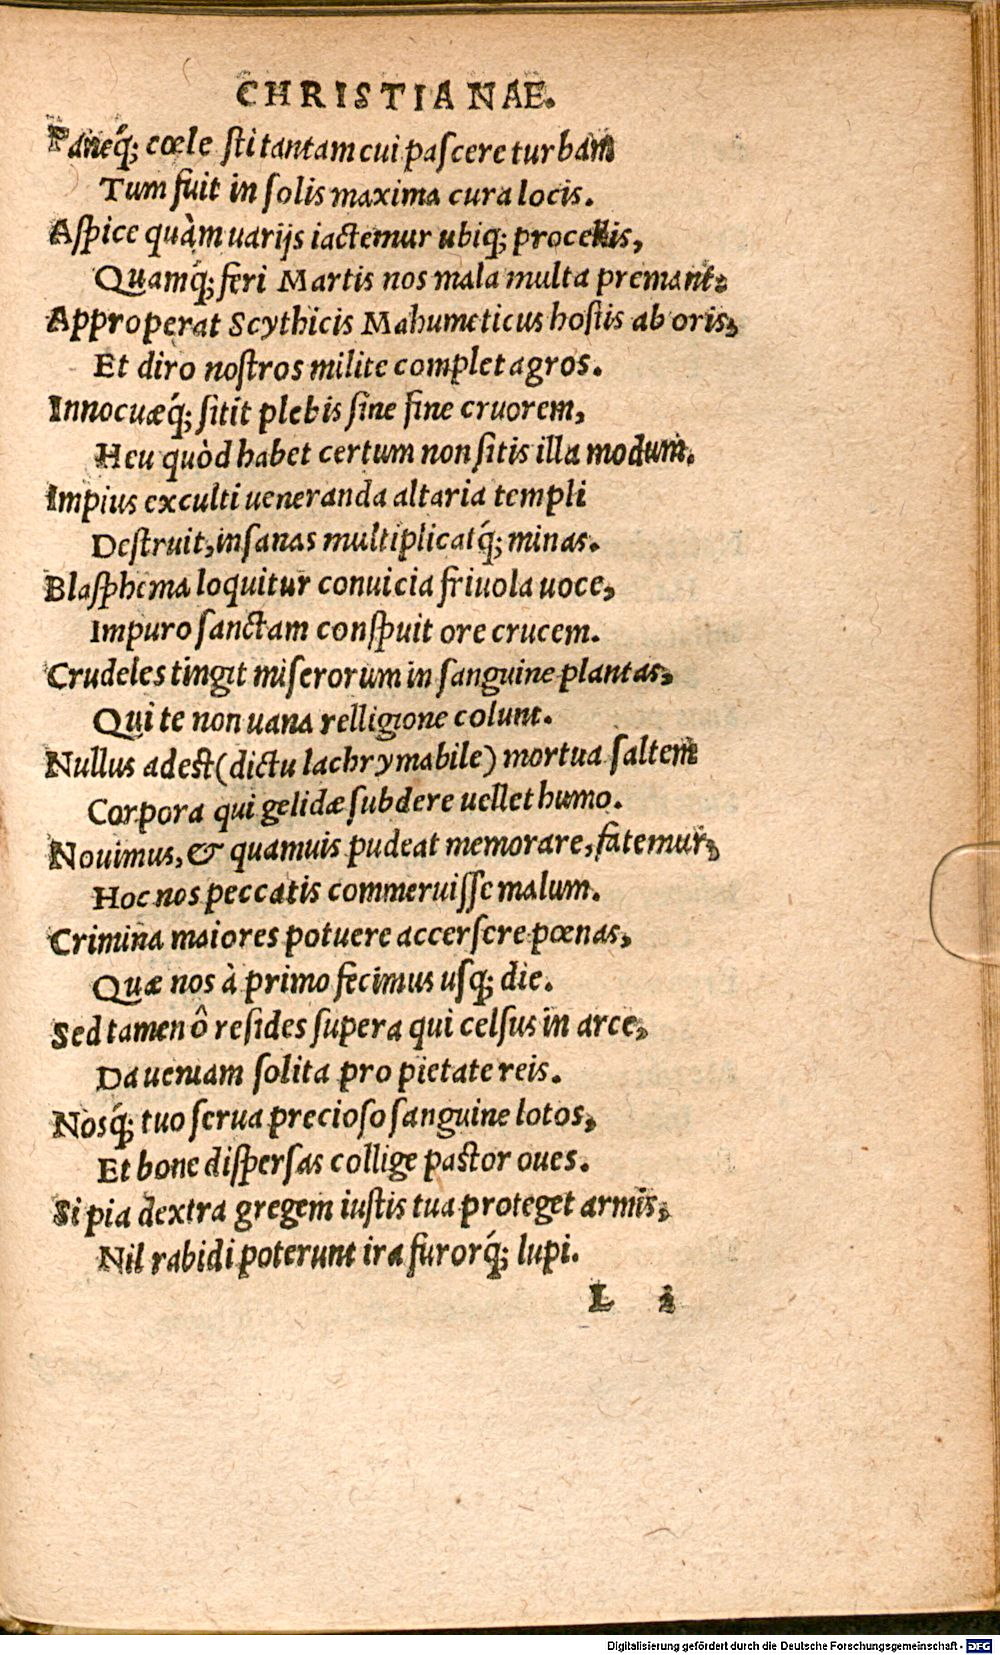 CHRISTIANAE.
Paneq́; cœlesti tantam cui pascere turbam
Tum fuit in solis maxima cura locis.
Aspice quàm uarijs iactemur ubiq; procellis,
Quamq́; feri Martis nos mala multa premant:
Approperat Scythicis Mahumeticus hostis ab oris,
Et diro nostros milite complet agros.
Innocuæq́; sitit plebis sine fine cruorem,
Heu quòd habet certum non sitis illa modum.
Impius exculti ueneranda altaria templi
Destruit, insanas multiplicatq́; minas.
Blasphema loquitur conuicia friuola uoce,
Impuro sanctam conspuit ore crucem.
Crudeles tingit miserorum in sanguine plantas,
Qui te non uana relligione colunt.
Nullus adest (dictu lachrymabile) mortua saltem
Corpora qui gelidæ subdere uellet humo.
Nouimus, & quamuis pudeat memorare, fatemur,
Hoc nos peccatis commeruisse malum.
Crimina maiores potuere accersere pœnas,
Quæ nos à primo fecimus usq; die.
Sed tamen ô resides supera qui celsus in arce,
Da ueniam solita pro pietate reis.
Nosq́; tuo serua precioso sanguine lotos,
Et bone dispersas collige pastor oues.
Si pia dextra gregem iustis tua proteget armis,
Nil rabidi poterunt ira furorq́; lupi.
L 2
Digitalisierung gefördert durch die Deutsche Forschungsgemeinschaft - DFG